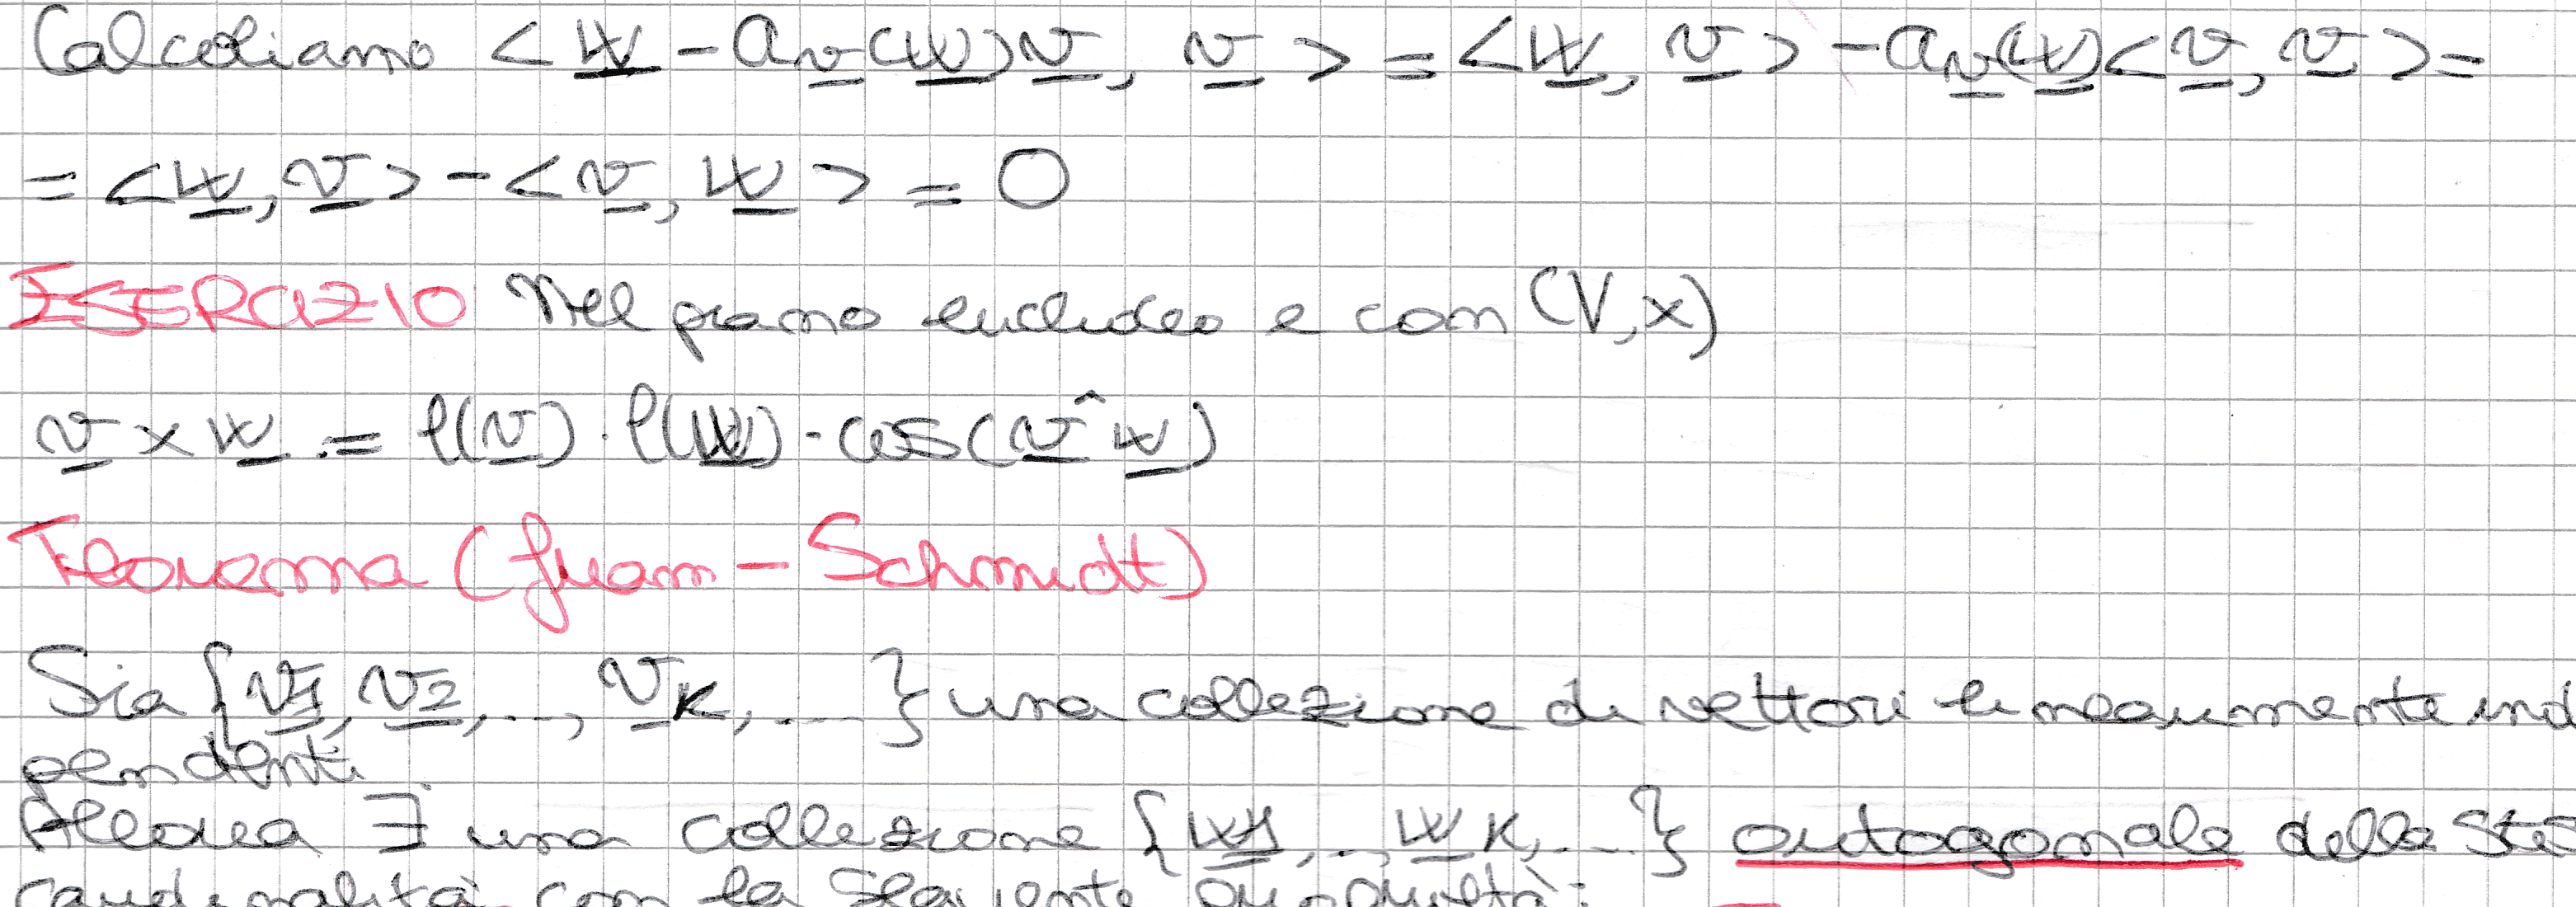 Calcoliamo < w - a_v(w)v, v > = < w, v > - a_v(w) < v, v > =
= < w, v > - < v, w > = 0
ESERCIZIO Nel piano euclideo e con (V, x)
v x w := l(v) · l(w) · cos(v^w)
Teorema (Gram - Schmidt)
Sia {v1, v2, ..., vk, ...} una collezione di vettori linearmente indi
pendenti
Allora ∃ una collezione {w1, .., wk, ...} ortogonale della stes
cardinalità con la seguente proprietà: